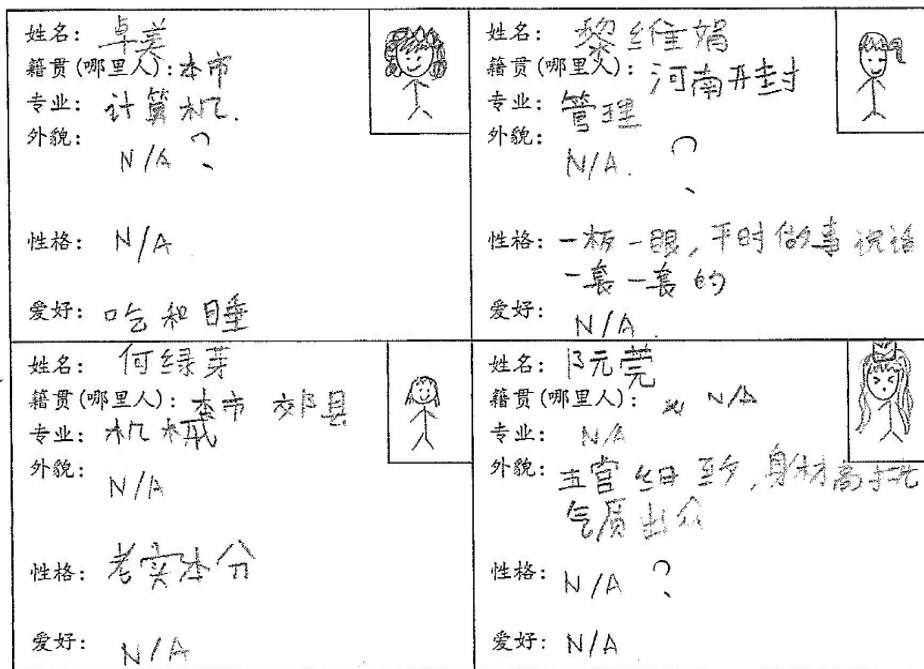 姓名：卓美
籍贯(哪里人)：本市
专业：计算机.
外貌：
N/A ?
性格：N/A
爱好：吃和睡
姓名：黎维娟
籍贯(哪里人)：河南开封
专业：管理
外貌：
N/A. ?
性格：一板一眼,平时做事说话
一套一套的
爱好：
N/A.
姓名：何绿芽
籍贯(哪里人)：本市 郊县
专业：机械
外貌：
N/A
性格：老实本分
爱好：N/A
姓名：阮莞
籍贯(哪里人)：N/A
专业：N/A
外貌：五官细致,身材高挑
气质出众
性格：N/A ?
爱好：N/A